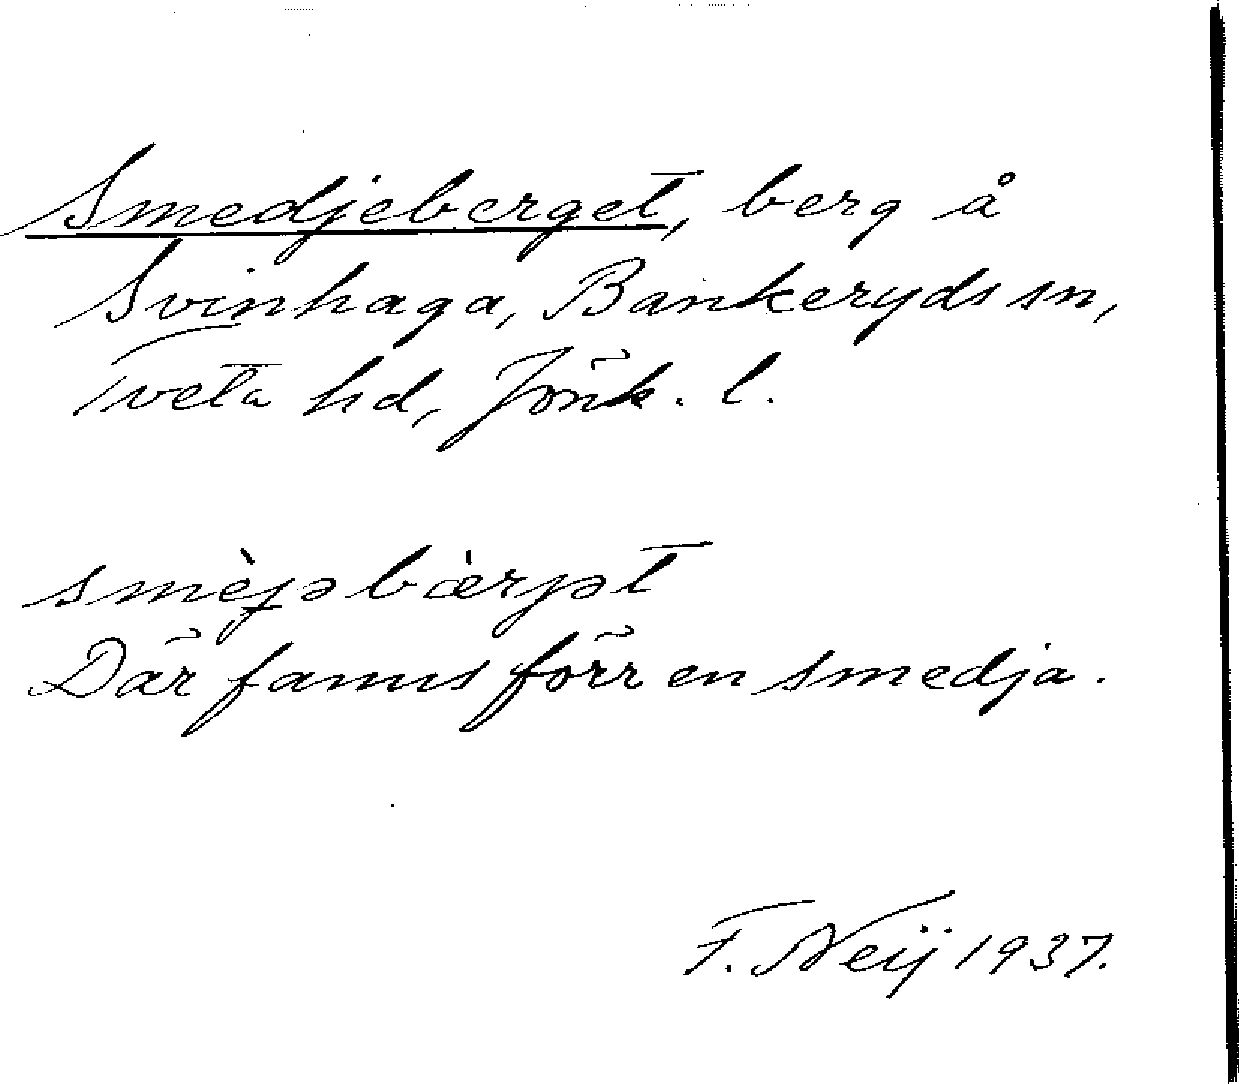 Smedjeberget, berg å
Svinhaga, Bankeryds sn,
Tveta hd, Jönk. l.
smèɟəbæ̀rjət
Där fanns förr en smedja.
F. Neij 1937.